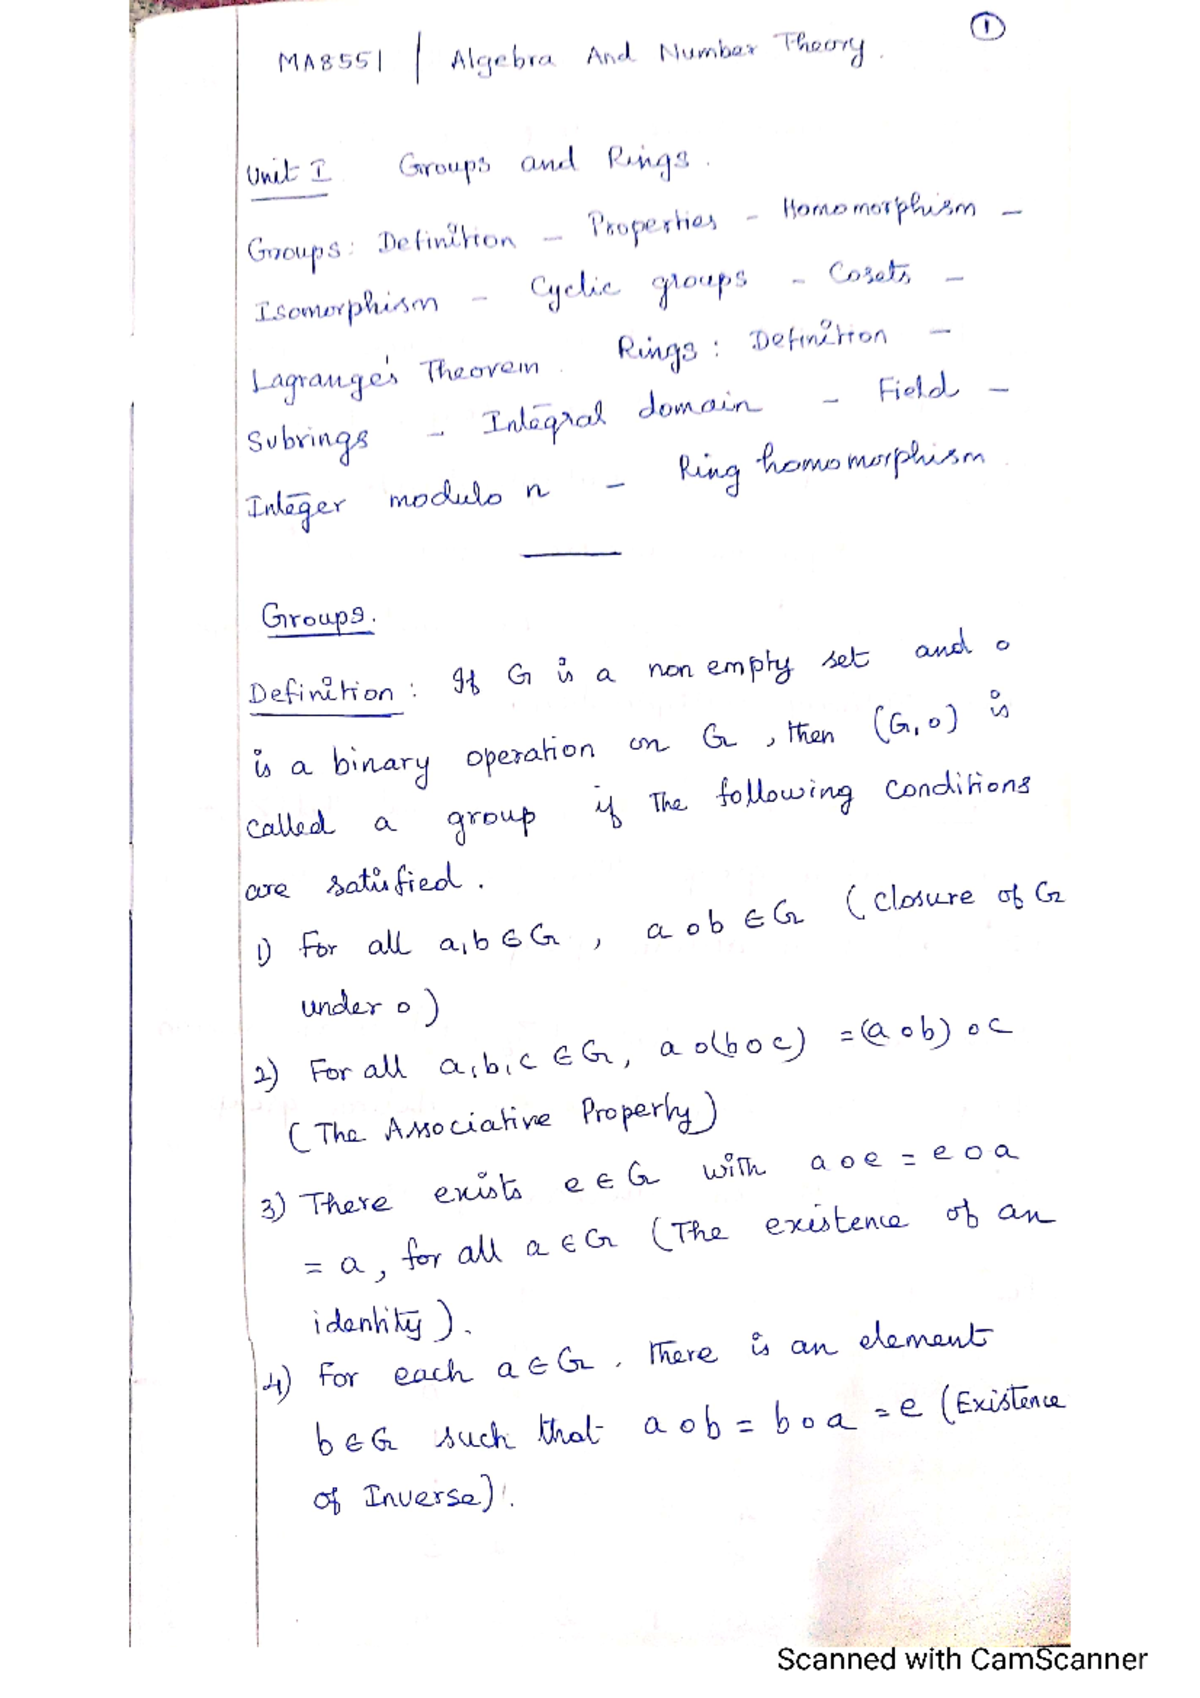 ①
MA8551 | Algebra And Number Theory.
Unit I Groups and Rings.
Groups: Definition - Properties - Homomorphism -
Isomorphism - Cyclic groups - Cosets -
Lagrange's Theorem. Rings: Definition -
Subrings - Integral domain - Field -
Integer modulo n - Ring homomorphism
Groups.
Definition: If G is a non empty set and o
is a binary operation on G, then (G, o) is
called a group if The following conditions
are satisfied.
1) For all a,b ∈ G, a o b ∈ G (closure of G
under o)
2) For all a,b,c ∈ G, a o(b o c) = (a o b) o c
(The Associative Property)
3) There exists e ∈ G with a o e = e o a
= a, for all a ∈ G (The existence of an
identity).
4) For each a ∈ G, there is an element
b ∈ G such that a o b = b o a = e (Existence
of Inverse).
Scanned with CamScanner